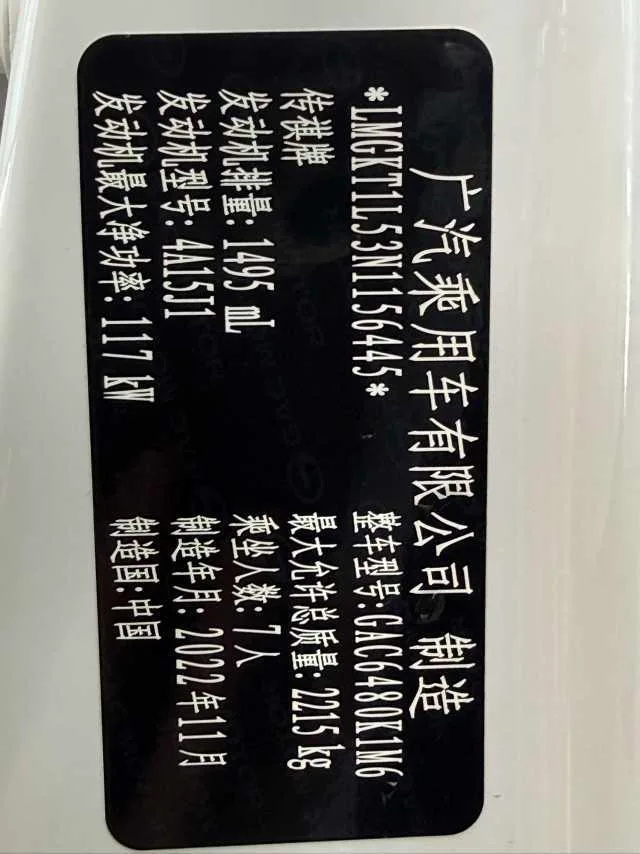 广汽乘用车有限公司 制造
*LMGKT1L53N1156445* 整车型号:GAC6480K1M6
传祺牌 最大允许总质量: 2215 kg
发动机排量: 1495 mL 乘坐人数: 7 人
发动机型号: 4A15J1 制造年月: 2022年11月
发动机最大净功率: 117 kW 制造国: 中国